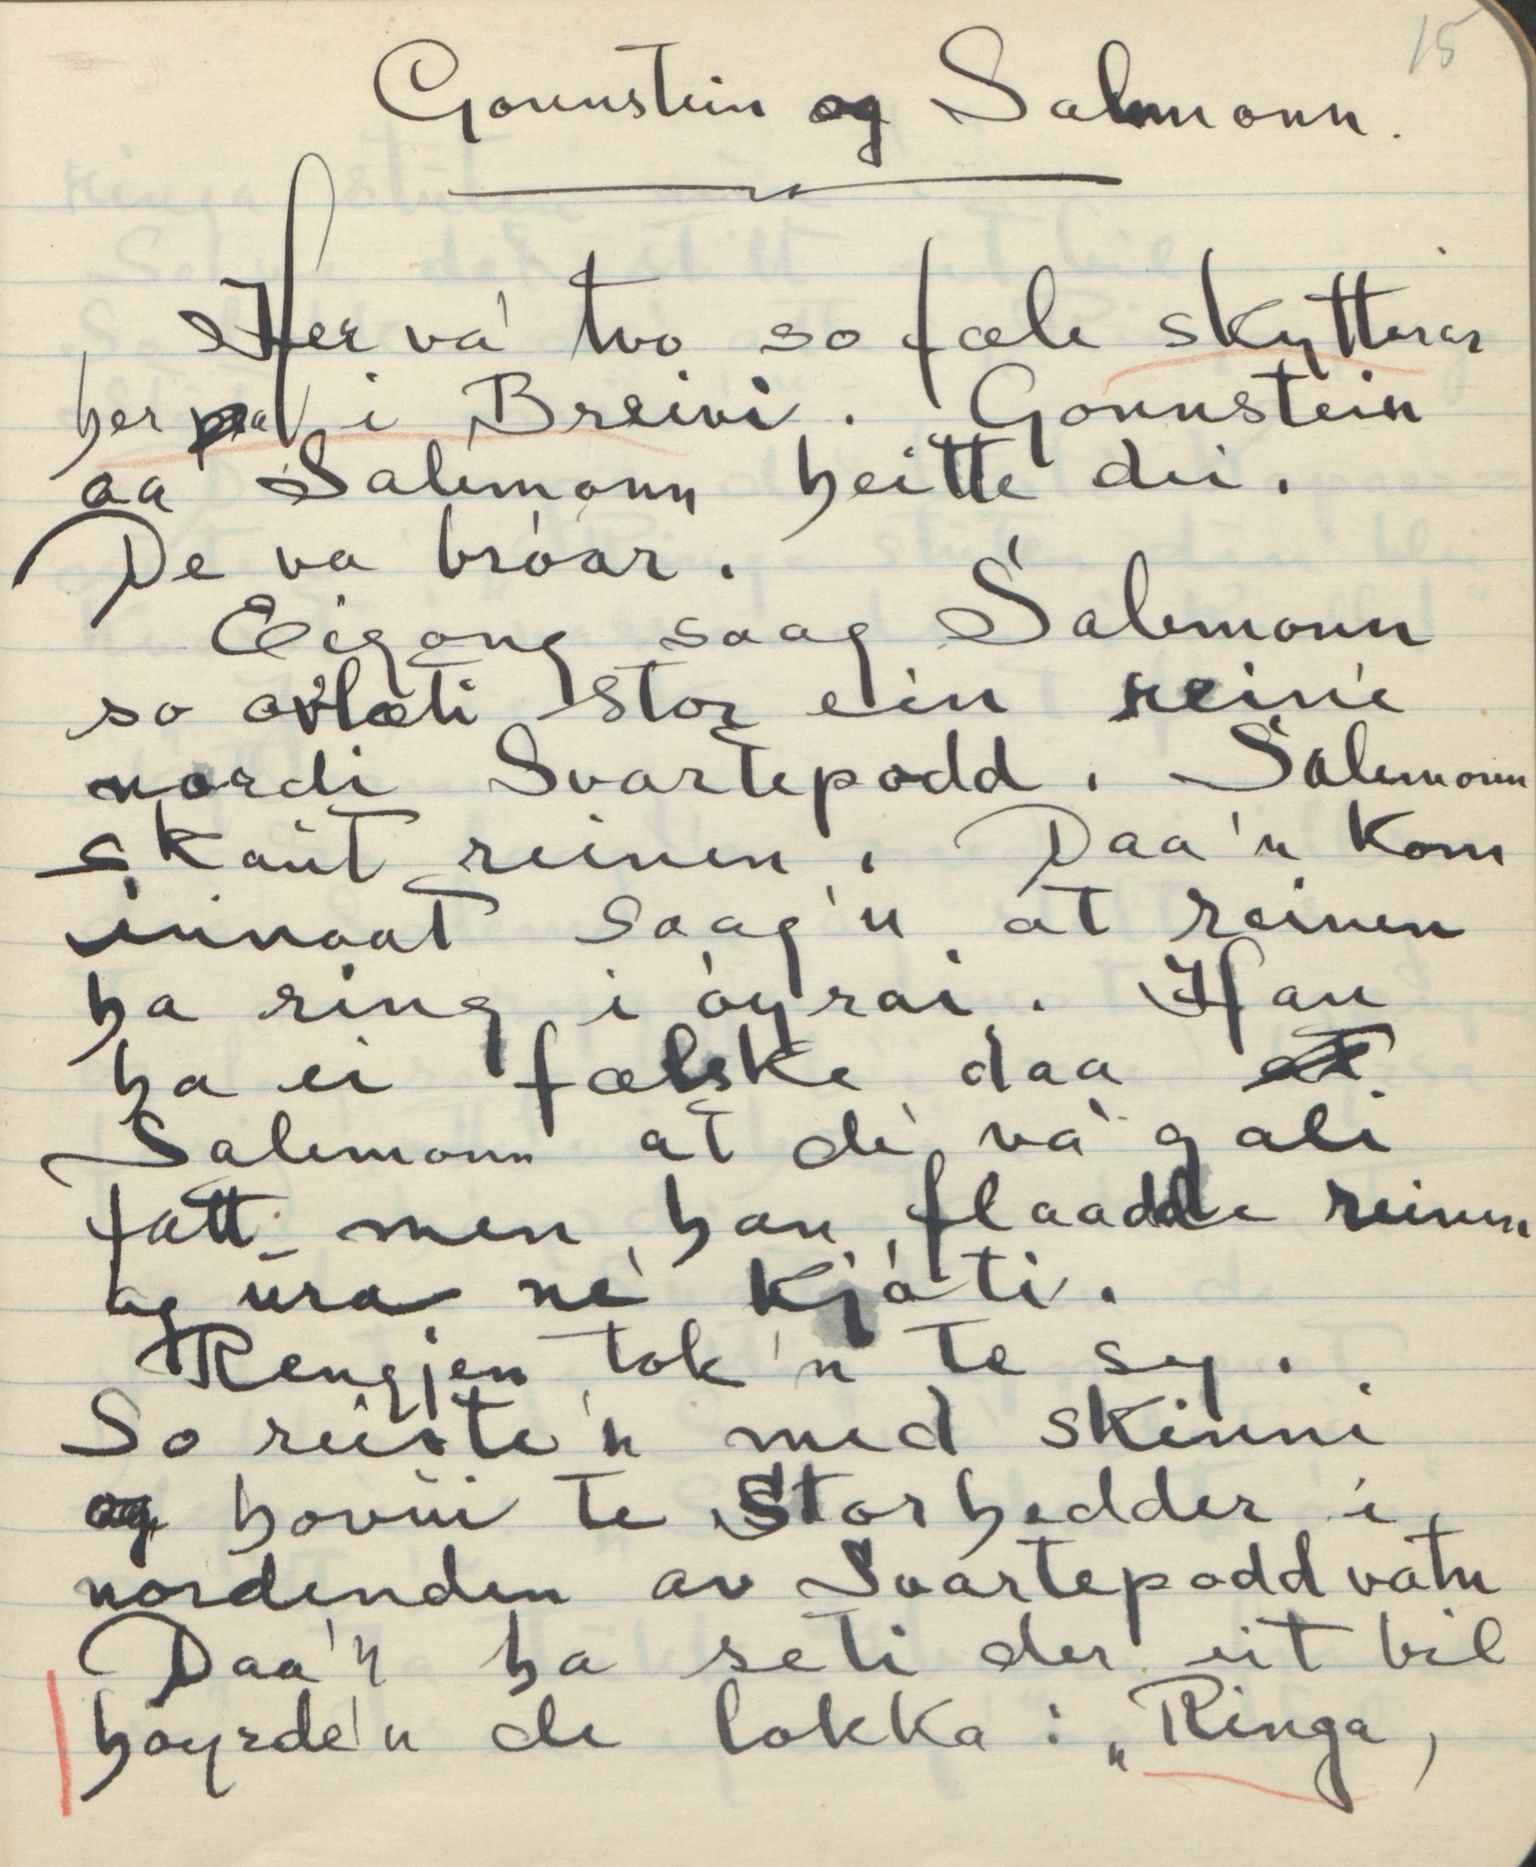 15
Gonnstein og Salemonn.
Her va' tvo so fæle skyttarar
her paa i Breivi. Gonnstein
aa Salemonn heitte dei.
De va bróar.
Eigong saag Salemonn
so ovlæti stor ein reine
nordi Svartepodd. Salemonn
skaut reinen. Daa'n kom
innaat saag'n at reinen
ha ring i óyrai. Han
ha ei fælske daa
Salemonn at de' va' gali
fatt - men han flaadde reinen
og ura ne' kjøti.
Rengjen tok'n te sy.
So reiste'n med skinni
og hovui te Storhedder i
nordenden av Svartepoddvatn
Daa'n ha seti der eit bil
hoyrde'n de lokka: „Ringa,